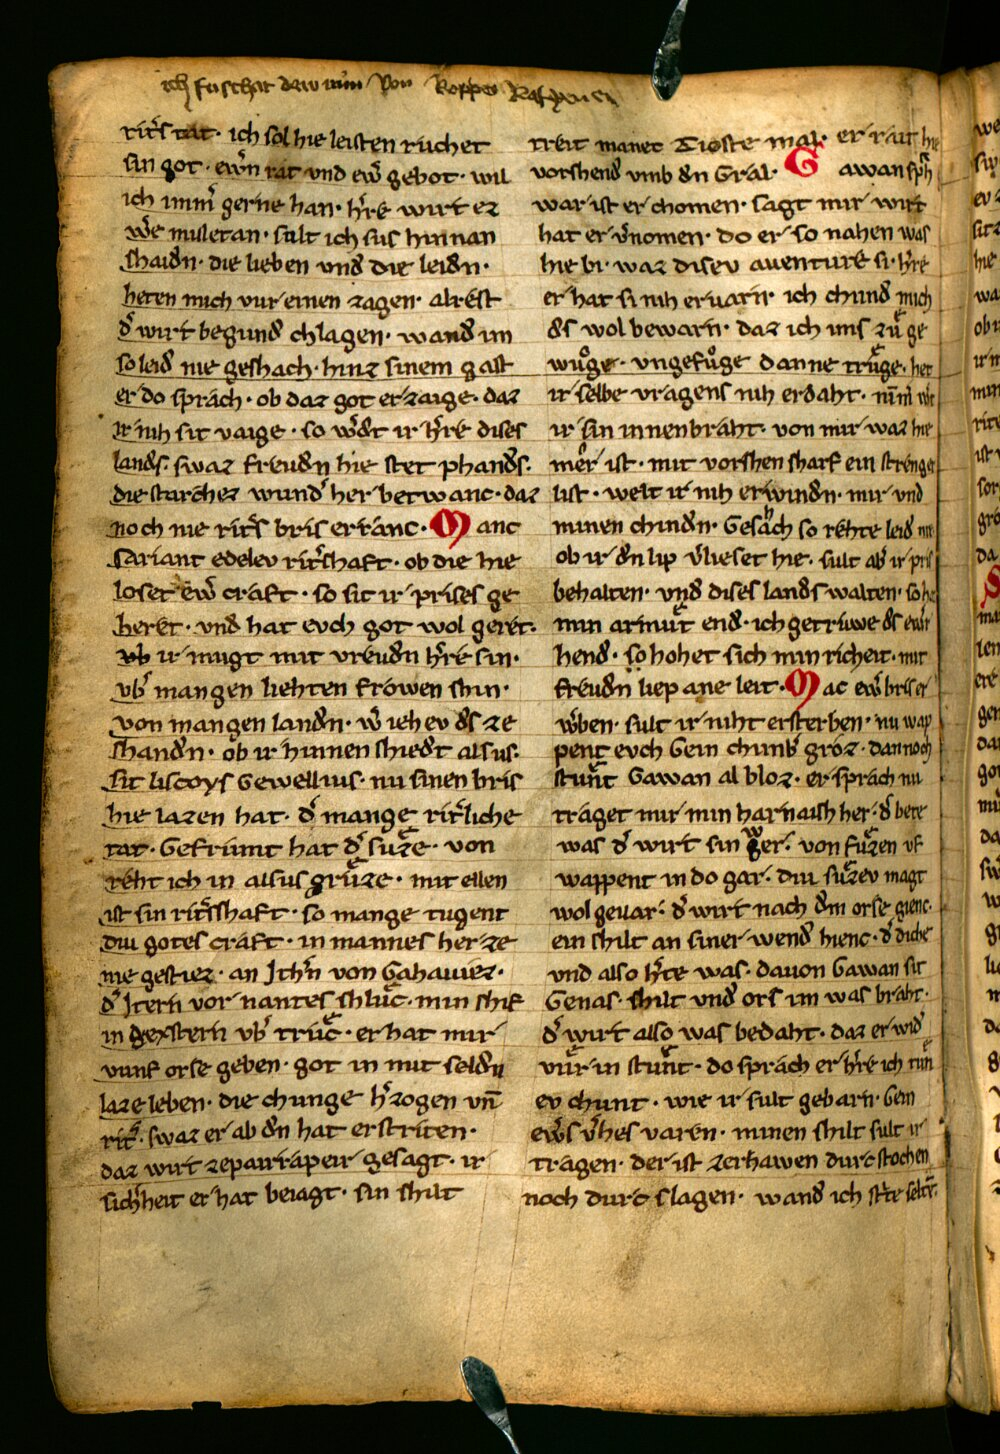 ich
riters tat · ich sol hie leisten ruchet
sin got · ewrn rat vnd ewr gebot · wil
ich immer gerne han · herre wirt ez
were missetan · sult ich sus hinnan
shaidn · die lieben vnd die leidn ·
heten mich vur einen zagen · alrest
der wirt begund chlagen · wand im
so leid nie geshach · hinz sinem gast
er do sprach · ob daz got erzaige · daz
ir nih sit vaige · so werdet ir herre dises
lands · swaz freudn hie stet phands ·
die starchez wunder her betwanc · daz
noch nie riters bris erranc · Manc
sariant edelev ritershaft · ob die hie
loset ewr craft · so sit ir prises ge
heret · vnd hat evch got wol geret ·
ir mugt mit vreudn herre sin ·
vber mangen liehten frowen shin ·
von mangen landn ·
shandn · ob ir hinnen shiedt alsus ·
sit liscoys Gewellius · nu sinen bris
hie lazen hat · der mange riterliche
tat · Gefrumt hat der suze · von
reht ich in alsus gruze · mit ellen
ist sin ritersshaft · so mange tugent
diu gotes craft · in mannes herze
nie gestiez · an Ithern von Gahaviez ·
der Itern vor nantes shluc · min shif
in gestern vber truc · er hat mir
vunf orse geben · got in mit seldn
laze leben · die chunge herzogen vnd
riter · swaz er ab dn hat erstriten ·
daz wirt ze pavrapeir gesagt · ir
sicherheit er hat beiagt · sin shilt
treit manec Tioste mal · er rait hie
vorshend vmb dn Gral · Gawan sprah
war ist er chomen · sagt mir wirt
hat er vernomen · do er so nahen was
hie bi · waz disev auenture si · herre
er hat si nih ervarn · ich chund mich
des wol bewarn · daz ich ims zu ge
wuoge · vngefuoge danne truge · het
ir selbe vragens nih erdaht ·
ir sin innen braht · von mir waz hie
mer ist · mit vorshen sharf ein strenger
list · welt ir nih erwindn · mir vnd
minen chindn · Geshach so rehte leid nie
ob ir dn lip verlieset hie · sult aber ir pris
behalten · vnd dises lands walten · so hat
min armut end · ich getriwe des ewer
hend · so hohet sich min richeit · mit
freudn liep ane leit · Mac ewr bris er
werben · sult ir niht ersterben · nu wap
pent evch Gein chumber groz · dannoch
stunt Gawan al bloz · er sprach nu
traget mir min harnaish her · der bete
was der wirt sin wer · von fuzen vf
wappent in do gar · diu suzev magt
wol gevar · der wirt nach dem orse gienc ·
ein shilt an siner wend hienc · der diche
vnd also herte was · davon Gawan sit
Genas · shilt vnd ors im was braht ·
der wirt also was bedaht · daz er wider
vur in stunt · do sprach er herre ich tun
ev chunt · wie ir sult gebarn · Gein
ewers verhes varen · minen shilt sult ir
tragen · der ist zerhawen durcstochen
noch durc slagen · wand ich strite selten ·